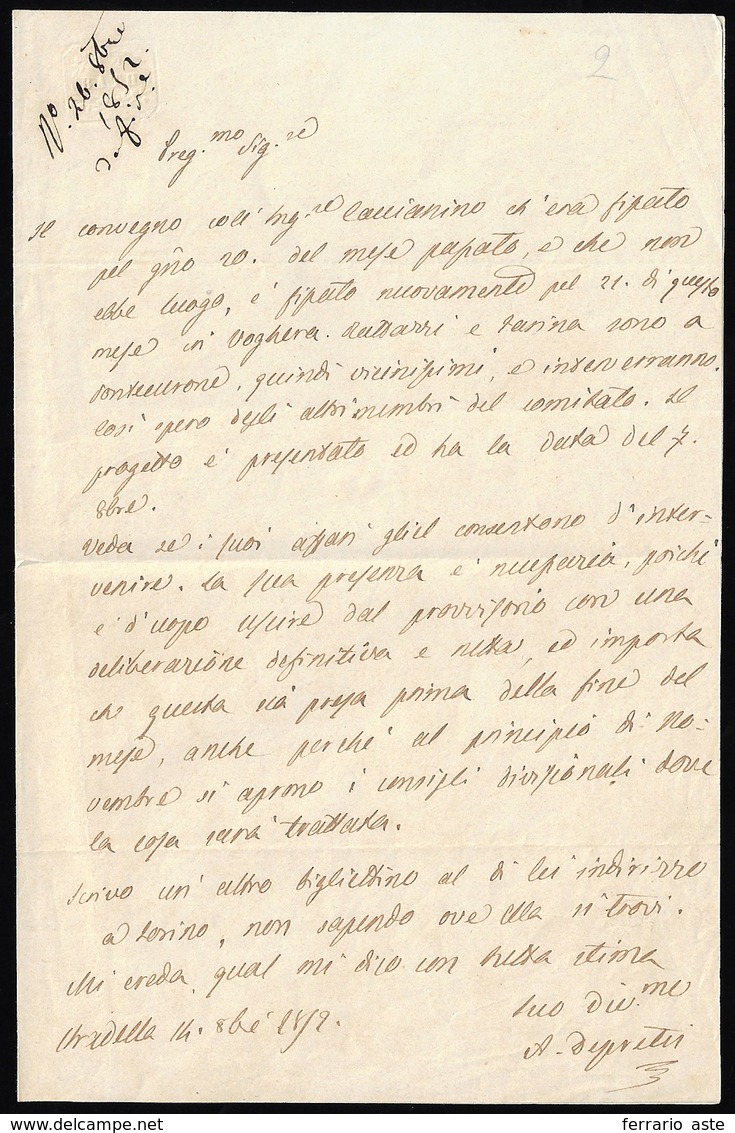 2
Nº. 26. 8bre
1852.
Preg.mo Sig.re
Il convegno coll' Ing.re Caccianino ch'era fissato
pel gno 20. del mese passato, e che non
ebbe luogo, è fissato nuovamente pel 21. di questo
mese in Voghera. Rattazzi e Farina sono a
Pontecurone, quindi vicinissimi, e interverranno.
Così spero degli altri membri del comitato. Il
progetto è presentato ed ha la data del 7.
8bre.
Veda se i suoi affari gliel consentono d'inter-
venire. La sua presenza è necessaria, poichè
è d'uopo uscire dal provvisorio con una
deliberazione definitiva e netta, ed importa
che questa sia presa prima della fine del
mese, anche perchè al principio di no-
vembre si aprono i consigli divisionali dove
la cosa sarà trattata.
Scrivo un' altro bigliettino al di lei indirizzo
a Torino, non sapendo ove ella si trovi.
Mi creda qual mi dico con tutta stima
Suo Div.mo
Stradella 14. 8bre 1852.
A. Depretis
ferrario aste